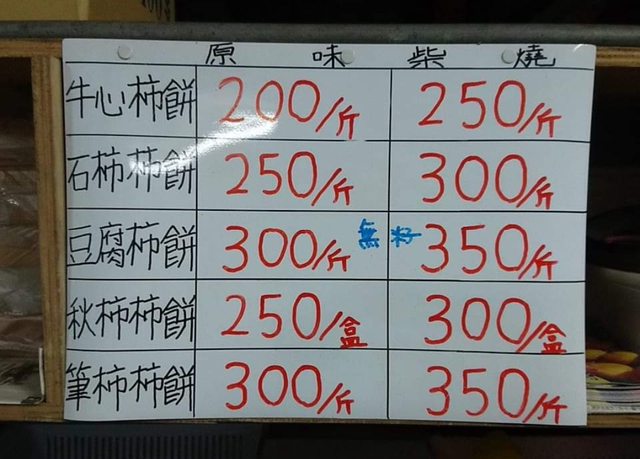 原味 柴燒
牛心柿餅 200/斤 250/斤
石柿柿餅 250/斤 300/斤
豆腐柿餅 300/斤 無籽 350/斤
秋柿柿餅 250/盒 300/盒
筆柿柿餅 300/斤 350/斤